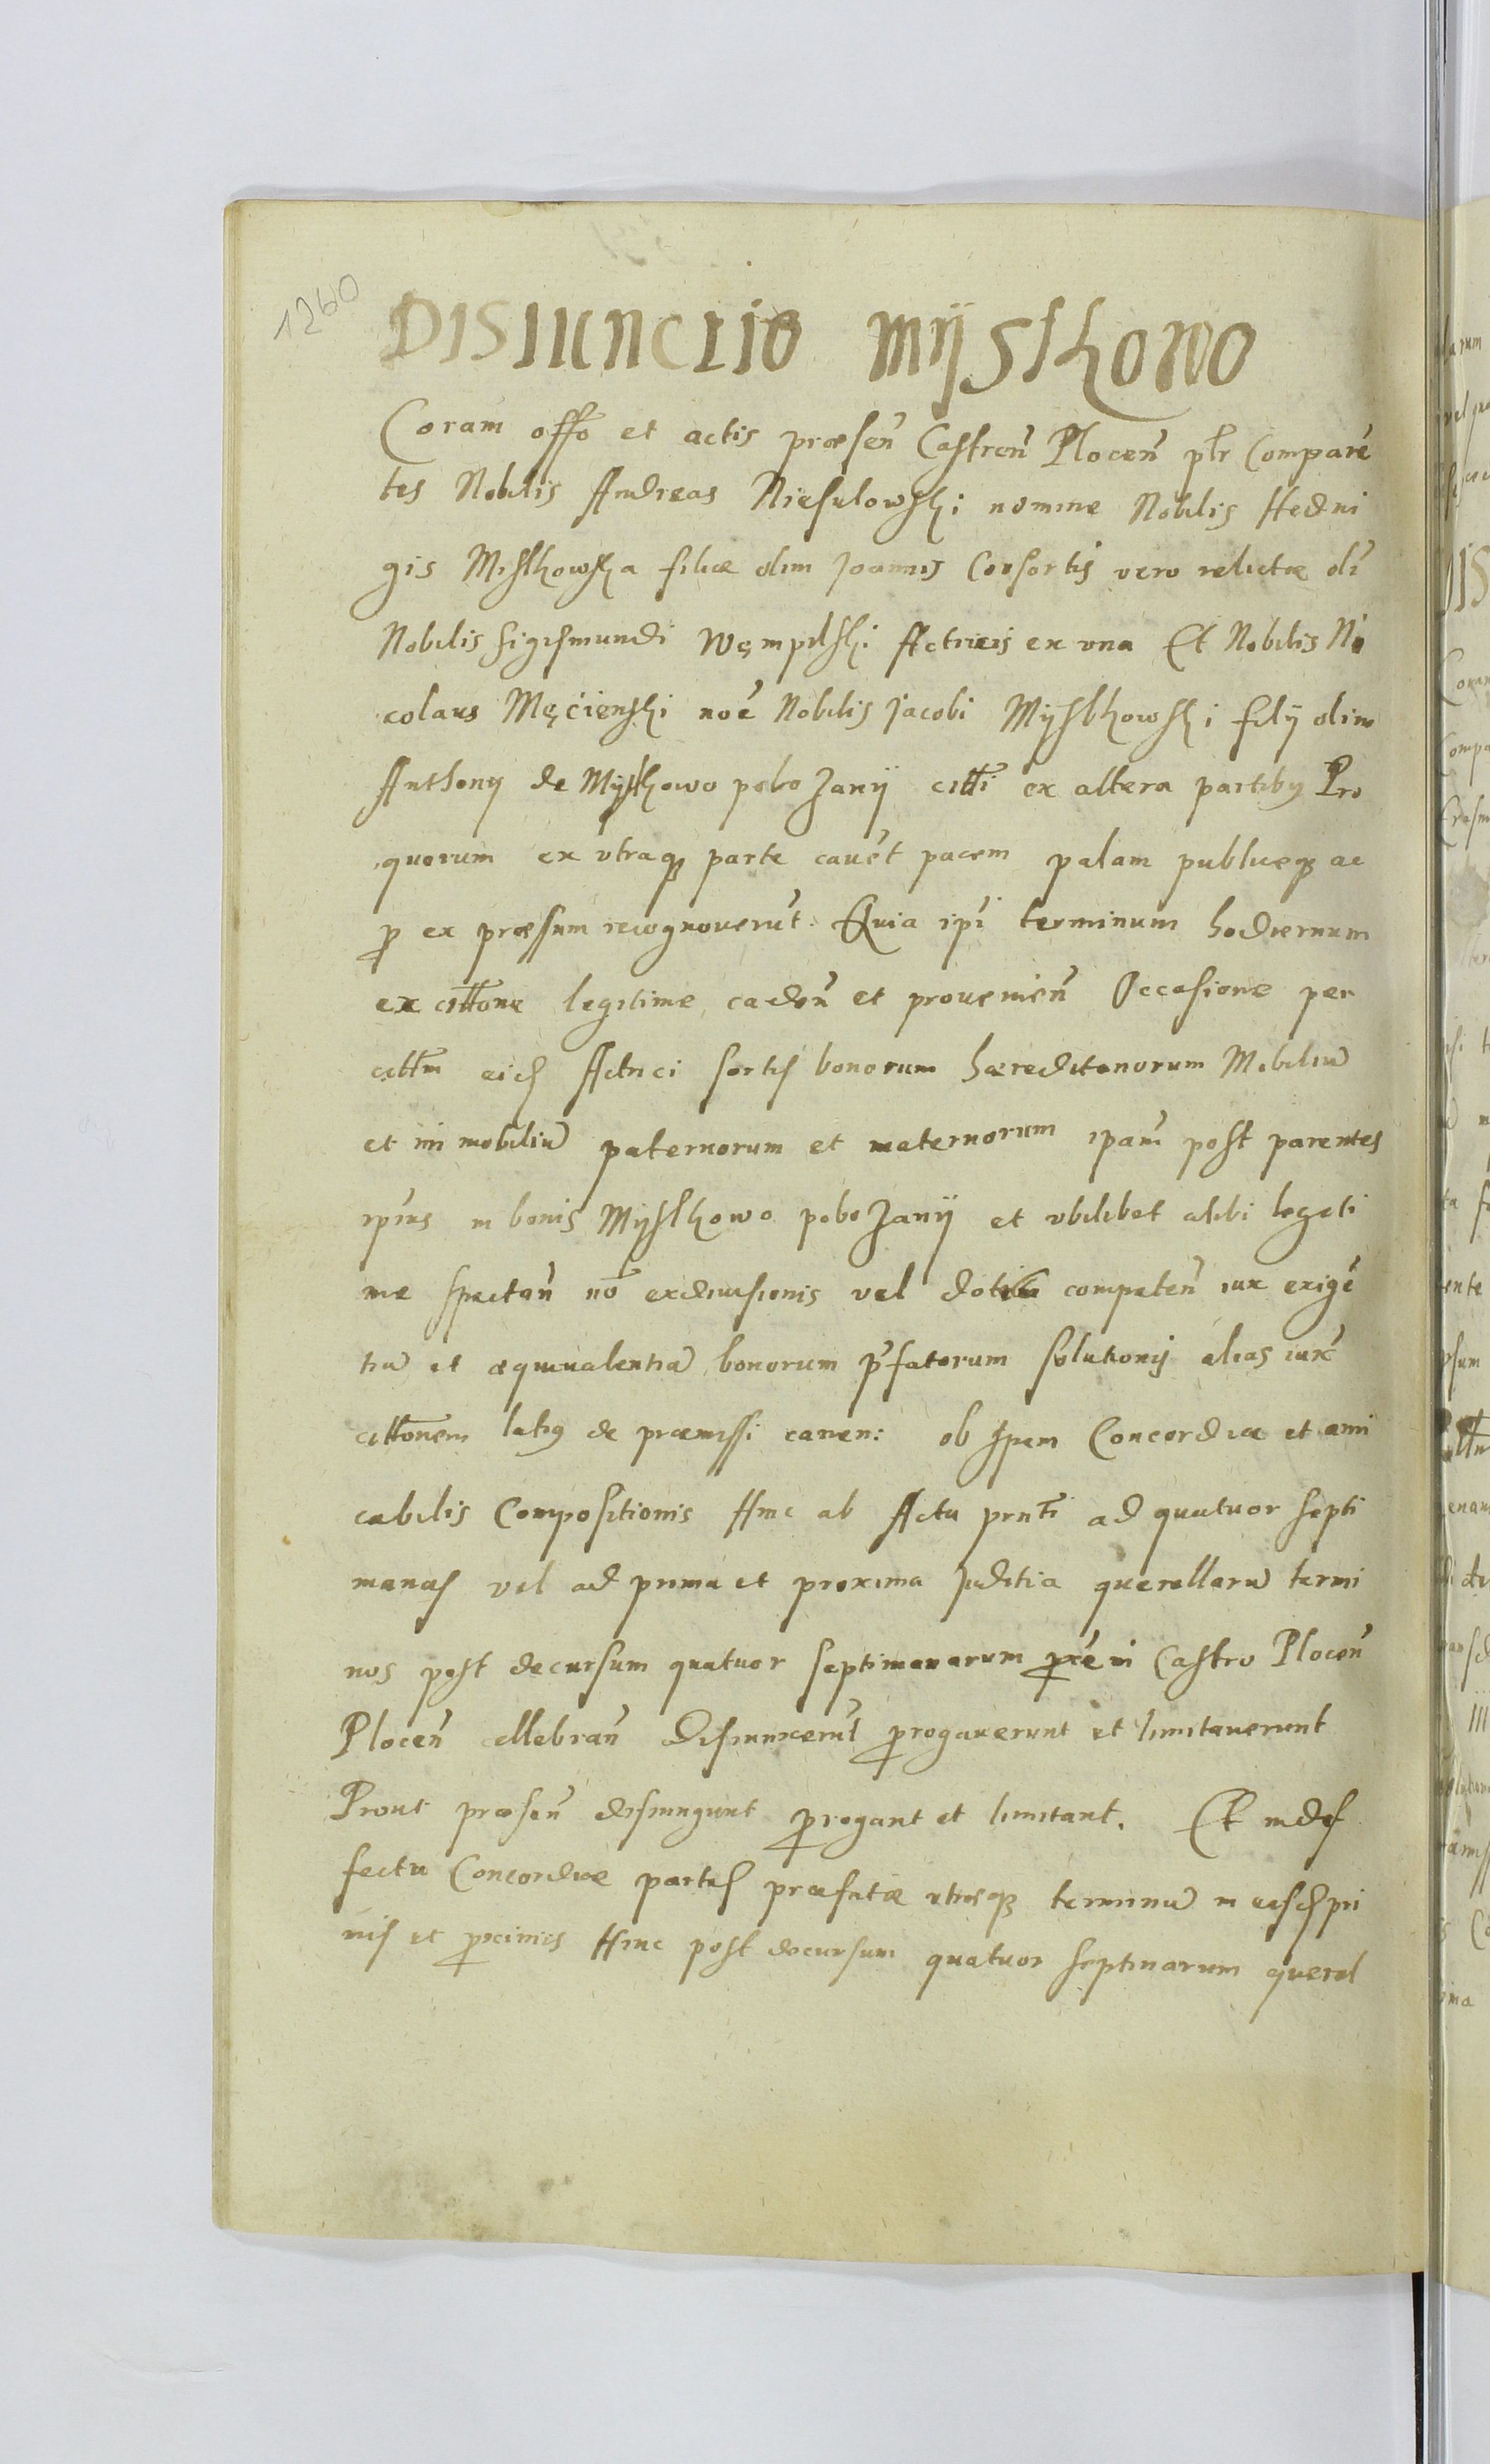 1260
DISIUNCTIO MÿSLKOWO
Coram offo et actis præsen̄ Castren̄ Plocen̄ plr Comparē
tes Nobilis Andreas Niesulowski nomine Nobilis Hedui
gis Mislkowska filiæ olim Joannis Consortis vero relictæ oli
Nobilis Sigismundi Wępilski Actricis ex vna Et Nobilis Ni
colaus Męcienski noē Nobilis Jacobi Myslkowski filij olim
Anthonij de Myslkowo poboZanÿ citti ex altera partibq Pro
quorum ex vtraqȝ parte cauēt pacem palam publiceqȝ ac
p ex præssum recognouerūt Quia ipī terminum hodiernum
ex cittone legitime caden̄ et prouenien̄ Occasione per
cittm Actrici sortis bonorum hæreditariorum Mobiliū
et im mobiliū paternorum et maternorum ipam post parentes
ipīus in bonis Myslkowo poboZanÿ et vbilibet alibi legiti
me spectan̄ nō exdiuisionis vel dotis competen̄ iux exigē
tiā et æquiualentiā bonorum p̄fatorum solutionis alias iuxͭ
cittonem latiq de præmissi canen: ob spem Concordiæ et ami
cabilis Compositionis Hinc ab Actu prnti ad quatuor septi
manas vel ad prima et proxima Juditia querellarū termi
nos post decursum quatuor septimanarum in Castro Plocen̄
Plocen̄ cellebran̄ Disiunxerūt progauerunt et limitauerunt
Prout præsen̄ disiungunt progant et limitant. Et indef
fectu Concordiæ partes præfatæ vtræqȝ terminū in pri
mis et proximis Hinc post decursum quatuor septinarum querel